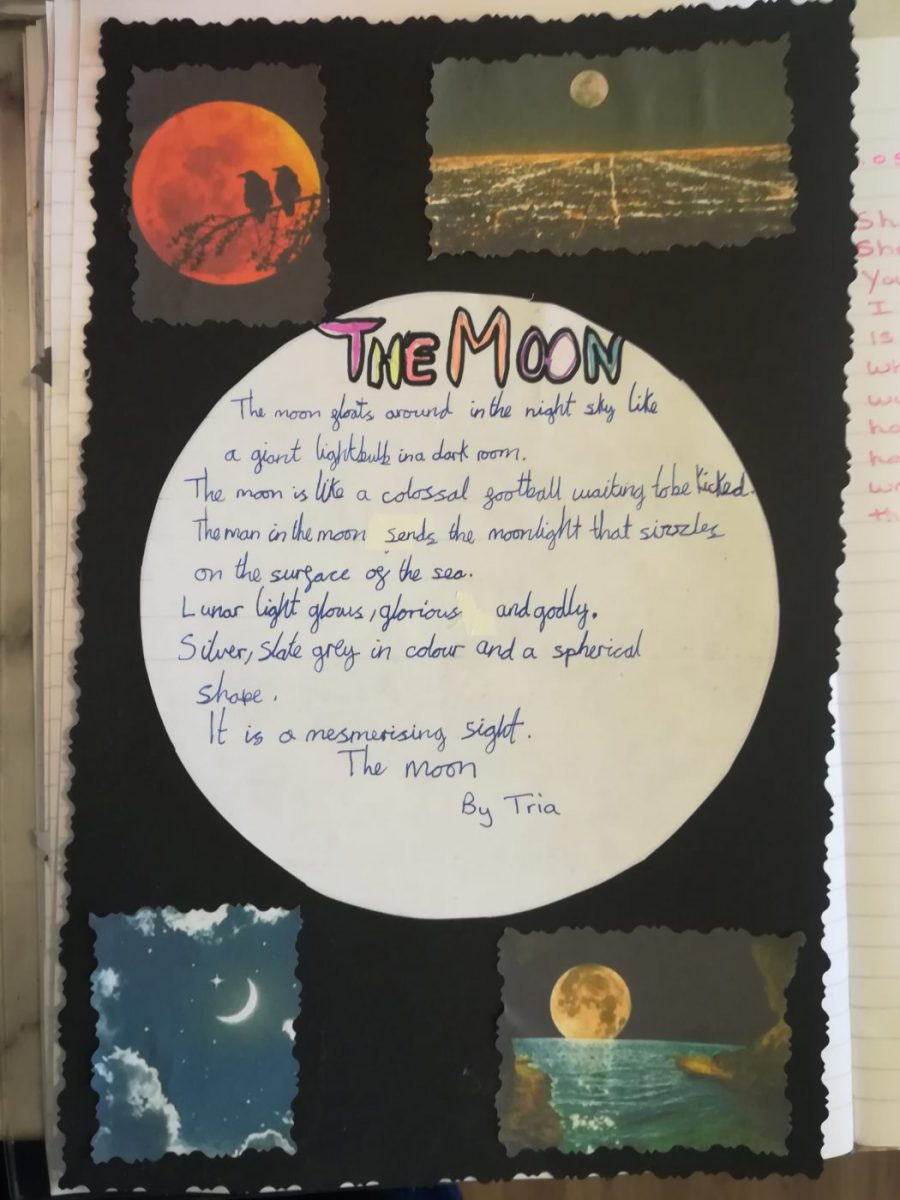 THE MOON
The moon floats around in the night sky like
a giant lightbulb in a dark room.
The moon is like a colossal football waiting to be kicked.
The man in the moon sends the moonlight that sizzles
on the surface of the sea.
Lunar light glows, glorious and godly.
Silver, slate grey in colour and a spherical
shape.
It is a mesmerising sight.
The moon
By Tria
You
I
is